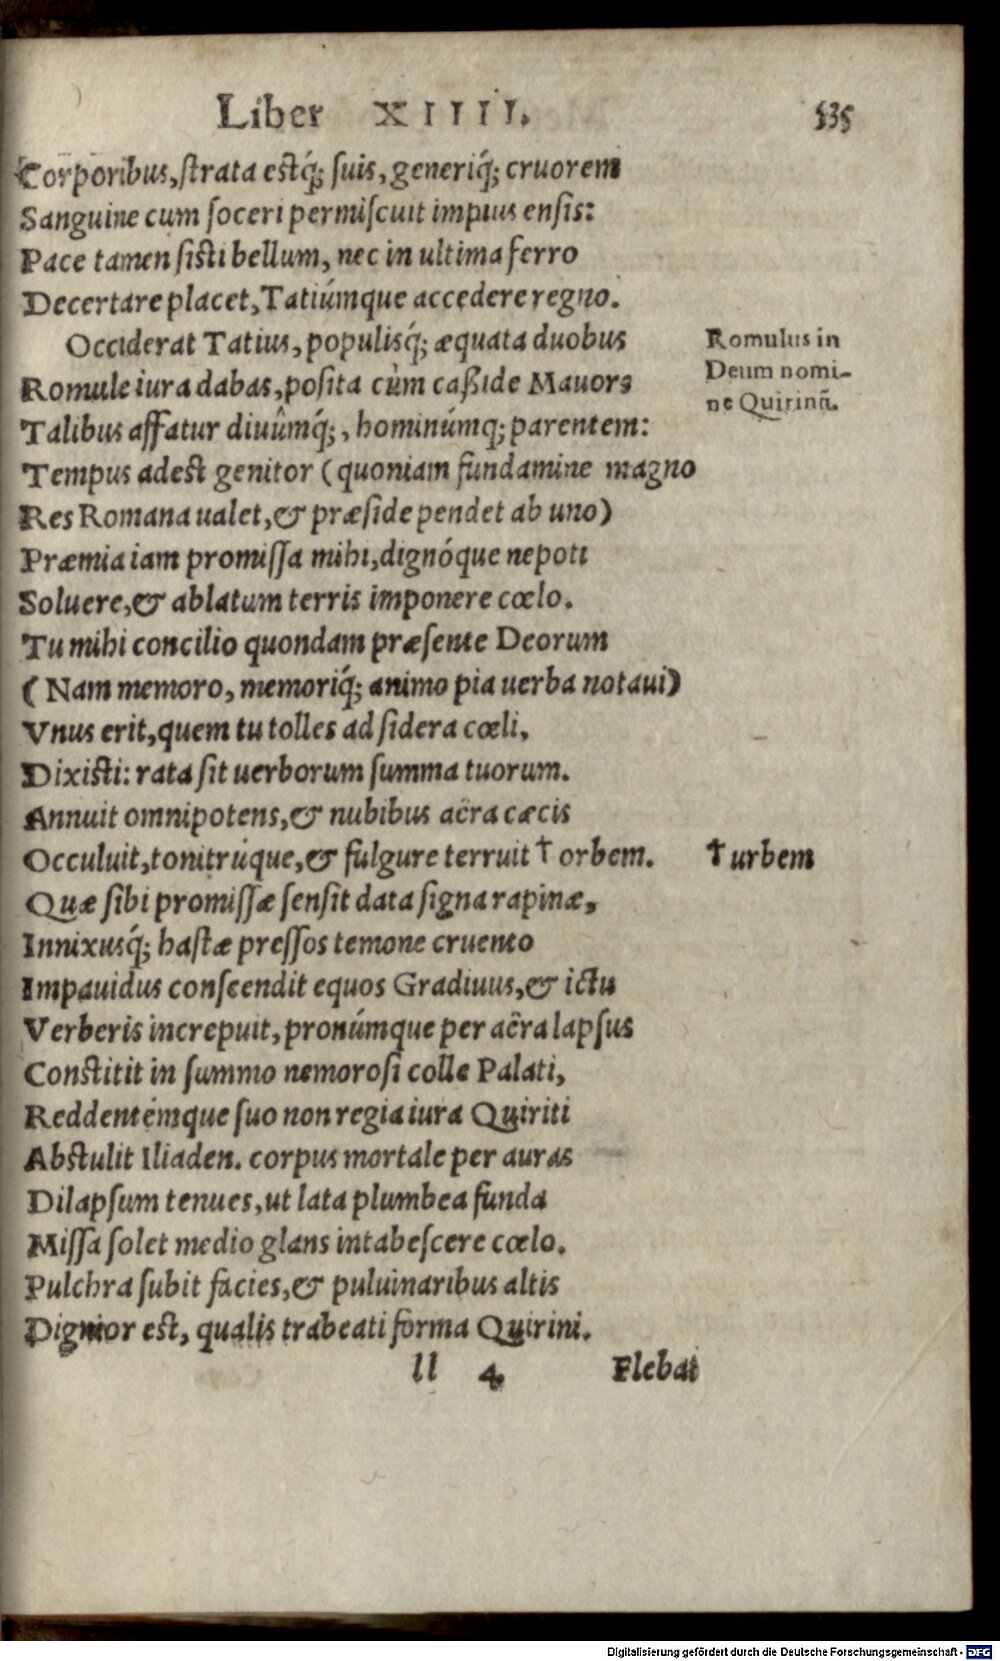 Liber XIIII. 535
Corporibus, ſtrata eſtq́; ſuis, generiq́; cruorem
Sanguine cum ſoceri permiſcuit impius enſis:
Pace tamen ſiſti bellum, nec in ultima ferro
Decertare placet, Tatiúmque accedere regno.
Occiderat Tatius, populisq́; æquata duobus
Romule iura dabas, poſita cùm caßide Mauors
Talibus affatur diuûmq́;, hominúmq; parentem:
Tempus adeſt genitor (quoniam fundamine magno
Res Romana ualet, & præſide pendet ab uno)
Præmia iam promiſſa mihi, dignóque nepoti
Soluere, & ablatum terris imponere cœlo.
Tu mihi concilio quondam præſente Deorum
(Nam memoro, memoriq́; animo pia uerba notaui)
Vnus erit, quem tu tolles ad ſidera cœli,
Dixiſti: rata ſit uerborum ſumma tuorum.
Annuit omnipotens, & nubibus aëra cæcis
Occuluit, tonitrúque, & fulgure terruit † orbem.
Quæ ſibi promiſſæ ſenſit data ſigna rapinæ,
Innixusq́; haſtæ preſſos temone cruento
Impauidus conſcendit equos Gradiuus, & ictu
Verberis increpuit, pronúmque per aëra lapſus
Conſtitit in ſummo nemoroſi colle Palati,
Reddentémque ſuo non regia iura Quiriti
Abſtulit Iliaden. corpus mortale per auras
Dilapſum tenues, ut lata plumbea funda
Miſſa ſolet medio glans intabeſcere cœlo.
Pulchra ſubit facies, & puluinaribus altis
Dignior eſt, qualis trabeati forma Quirini.
ll 4 Flebat
Romulus in
Deum nomi-
ne Quirinū.
† urbem
Digitalisierung gefördert durch die Deutsche Forschungsgemeinschaft - DFG